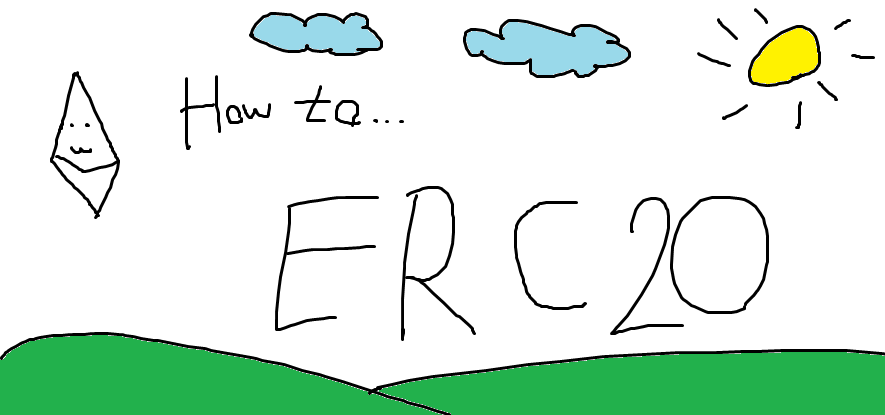 How to...
ERC20